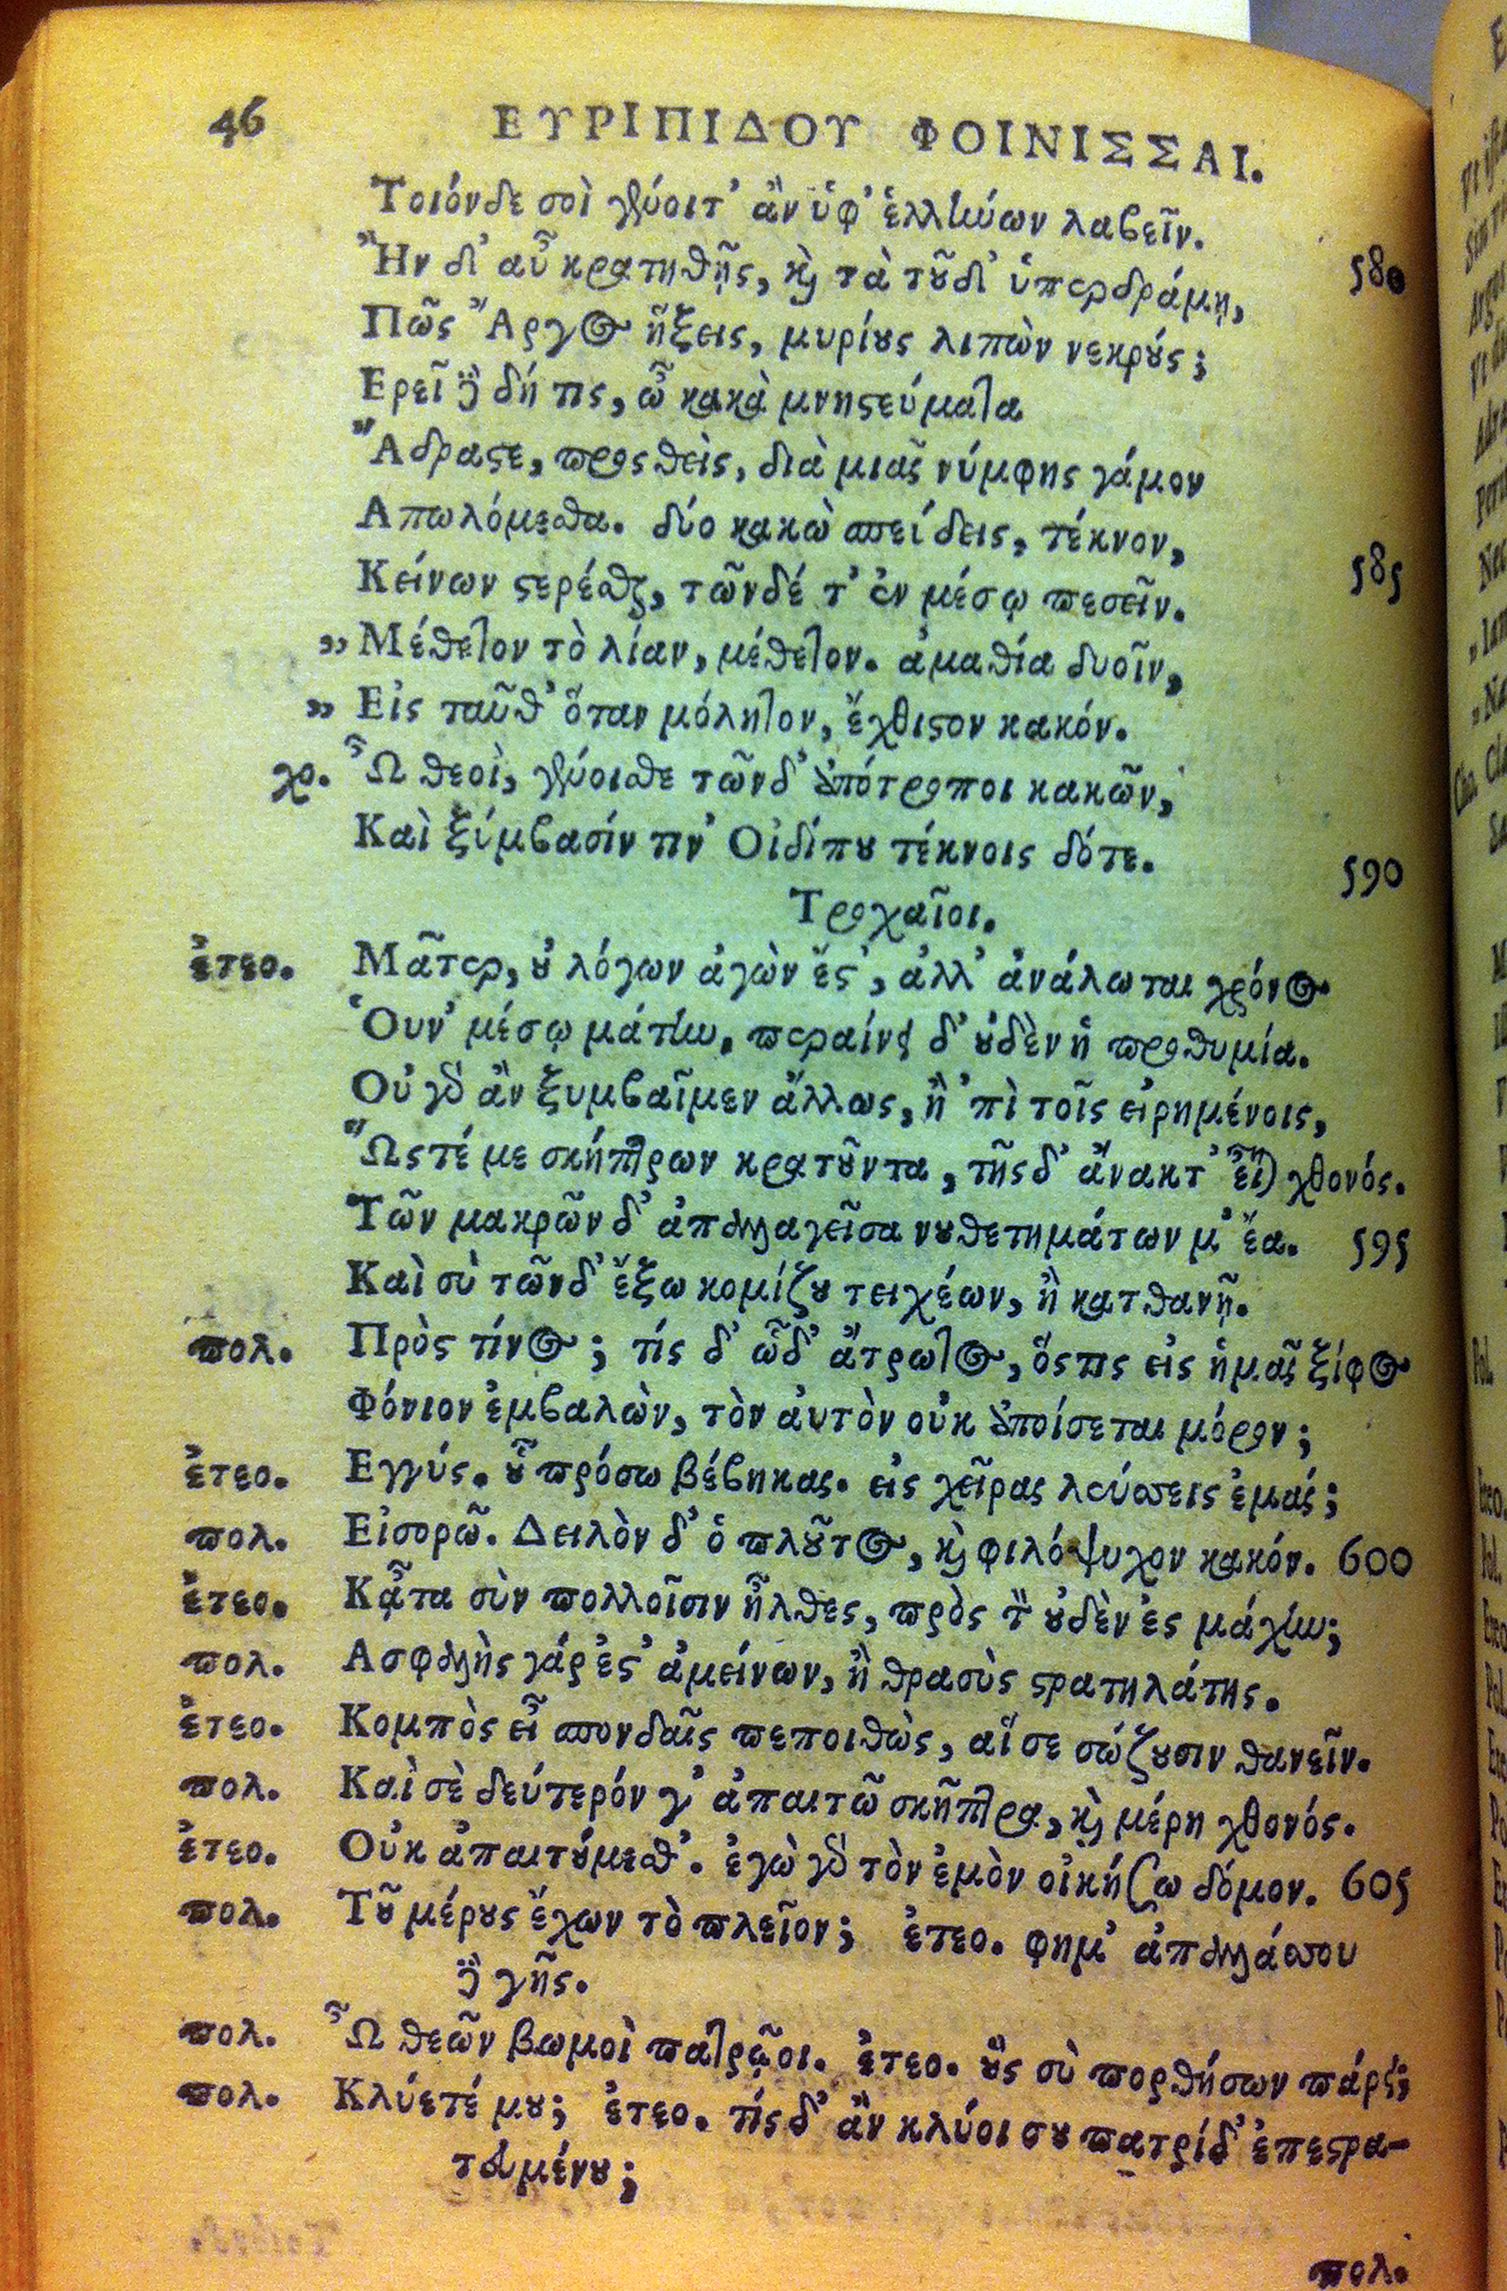 46 ΕΥΡΙΠΙΔΟΥ ΦΟΙΝΙΣΣΑΙ.
Τοιόνδε σοὶ γένοιτ' ἂν ὑφ' ἑλλήνων λαβεῖν.
Ἢν δ' αὖ κρατηθῇς, καὶ τὰ τοῦδ' ὑπερδράμῃ, 580
Πῶς Ἄργος ἥξεις, μυρίους λιπὼν νεκρούς;
Ερεῖ δὲ δή τις, ὦ κακὰ μνηστεύματα
Ἄδραστε, προσθεὶς, διὰ μιᾶς νύμφης γάμον
Απωλόμεσθα. δύο κακὼ σπεύδεις, τέκνον,
Κείνων στερέσθαι, τῶνδέ τ' ἐν μέσῳ πεσεῖν. 585
„ Μέθετον τὸ λίαν, μέθετον. ἀμαθία δυοῖν,
„ Εἰς ταῦθ' ὅταν μόλητον, ἔχθιστον κακόν.
χο. Ὦ θεοὶ, γένοισθε τῶνδ' ἀπότροποι κακῶν,
Καὶ ξύμβασίν τιν' Οἰδίπου τέκνοις δότε. 590
Τροχαῖοι.
ἐτεο. Μᾶτερ, οὐ λόγων ἀγὼν ἔστ', ἀλλ' ἀνάλωται χρόνος
Ὁυν' μέσῳ μάτην, περαίνει δ' οὐδὲν ἡ προθυμία.
Οὐ γὰρ ἂν ξυμβαῖμεν ἄλλως, ἢ 'πὶ τοῖς εἰρημένοις,
Ὥςτέ με σκήπτρων κρατοῦντα, τῆςδ' ἄνακτ' εἶναι χθονός.
Τῶν μακρῶν δ' ἀπαλλαγεῖσα νουθετημάτων μ' ἔα. 595
Καὶ σὺ τῶνδ' ἔξω κομίζου τειχέων, ἢ κατθανῇ.
πολ. Πρὸς τίνος; τίς δ' ὧδ' ἄτρωτος, ὅςτις εἰς ἡμᾶς ξίφος
Φόνιον ἐμβαλὼν, τὸν ἀυτὸν οὐκ ἀποίσεται μόρον;
ἐτεο. Εγγύς. οὐ πρόσω βέβηκας. εἰς χεῖρας λεύσσεις ἐμάς;
πολ. Εἰσορῶ. Δειλὸν δ' ὁ πλοῦτος, καὶ φιλόψυχον κακόν. 600
ἐτεο. Κᾆτα σὺν πολλοῖσιν ἦλθες, πρὸς τὸν οὐδὲν ἐς μάχην;
πολ. Ασφαλὴς γάρ ἐστ' ἀμείνων, ἢ θρασὺς στρατηλάτης.
ἐτεο. Κομπὸς εἶ σπονδαῖς πεποιθὼς, αἵ σε σώζουσιν θανεῖν.
πολ. Καὶ σὲ δεύτερόν γ' ἀπαιτῶ σκῆπτρα, καὶ μέρη χθονός.
ἐτεο. Οὐκ ἀπαιτούμεσθ'. ἐγὼ γὰρ τὸν ἐμὸν οἰκήσω δόμον. 605
πολ. Τοῦ μέρους ἔχων τὸ πλεῖον; ἐτεο. φημ' ἀπαλλάσσου
δὲ γῆς.
πολ. Ὦ θεῶν βωμοὶ πατρῷοι. ἐτεο. οὓς σὺ πορθήσων πάρει;
πολ. Κλύετέ μου; ἐτεο. τίς δ' ἂν κλύοι σου πατρίδ' ἐπεστρα-
τευμένου;
πολ.